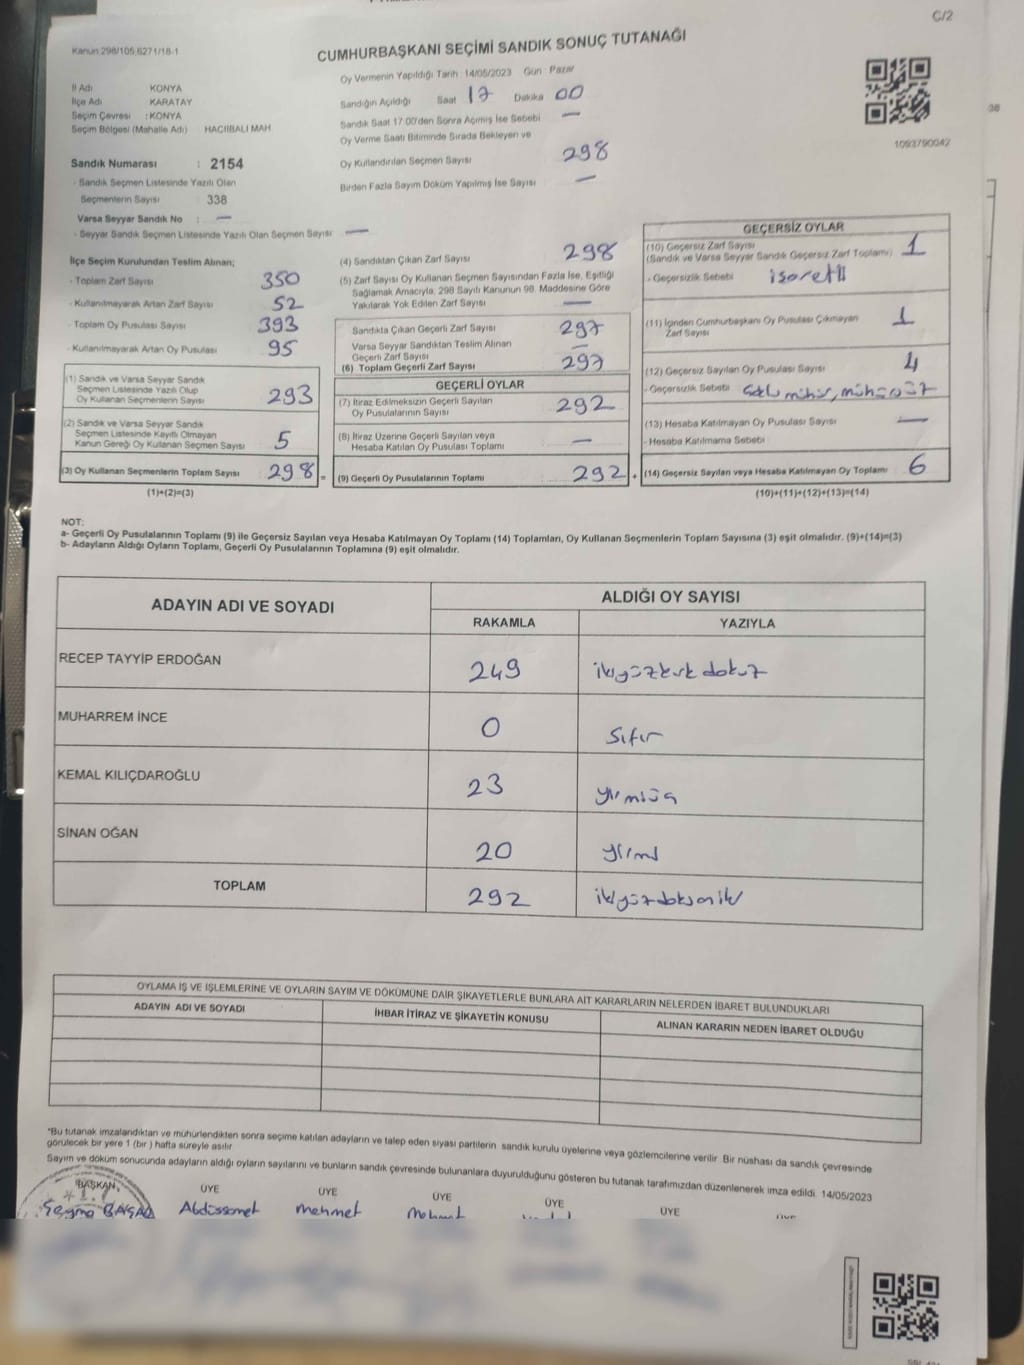 C/2
Kanun 298/105 6271/18-1
CUMHURBAŞKANI SEÇİMİ SANDIK SONUÇ TUTANAĞI
İl Adı KONYA
İlçe Adı KARATAY
Seçim Çevresi : KONYA
Seçim Bölgesi (Mahalle Adı) HACIIBALI MAH
Sandık Numarası : 2154
- Sandık Seçmen Listesinde Yazılı Olan
Seçmenlerin Sayısı : 338
Varsa Seyyar Sandık No : —
- Seyyar Sandık Seçmen Listesinde Yazılı Olan Seçmen Sayısı —
Oy Vermenin Yapıldığı Tarih : 14/05/2023 Gün : Pazar
Sandığın Açıldığı Saat 17 Dakika 00
Sandık Saat 17:00'den Sonra Açılmış İse Sebebi —
Oy Verme Saati Bitiminde Sırada Bekleyen ve
Oy Kullandırılan Seçmen Sayısı 298
Birden Fazla Sayım Döküm Yapılmış İse Sayısı —
1093790042
İlçe Seçim Kurulundan Teslim Alınan;
- Toplam Zarf Sayısı 350
- Kullanılmayarak Artan Zarf Sayısı 52
- Toplam Oy Pusulası Sayısı 393
- Kullanılmayarak Artan Oy Pusulası 95
(1) Sandık ve Varsa Seyyar Sandık
Seçmen Listesinde Yazılı Olup
Oy Kullanan Seçmenlerin Sayısı 293
(2) Sandık ve Varsa Seyyar Sandık
Seçmen Listesinde Kayıtlı Olmayan
Kanun Gereği Oy Kullanan Seçmen Sayısı 5
(3) Oy Kullanan Seçmenlerin Toplam Sayısı 298 =
(1)+(2)=(3)
(4) Sandıktan Çıkan Zarf Sayısı 298
(5) Zarf Sayısı Oy Kullanan Seçmen Sayısından Fazla İse, Eşitliği
Sağlamak Amacıyla, 298 Sayılı Kanunun 98. Maddesine Göre
Yakılarak Yok Edilen Zarf Sayısı —
Sandıkta Çıkan Geçerli Zarf Sayısı 297
Varsa Seyyar Sandıktan Teslim Alınan
Geçerli Zarf Sayısı —
(6) Toplam Geçerli Zarf Sayısı 297
GEÇERLİ OYLAR
(7) İtiraz Edilmeksizin Geçerli Sayılan
Oy Pusulalarının Sayısı 292
(8) İtiraz Üzerine Geçerli Sayılan veya
Hesaba Katılan Oy Pusulası Toplamı —
(9) Geçerli Oy Pusulalarının Toplamı 292 +
GEÇERSİZ OYLAR
(10) Geçersiz Zarf Sayısı
(Sandık ve Varsa Seyyar Sandık Geçersiz Zarf Toplamı) 1
- Geçersizlik Sebebi işaretli
(11) İçinden Cumhurbaşkanı Oy Pusulası Çıkmayan
Zarf Sayısı 1
(12) Geçersiz Sayılan Oy Pusulası Sayısı 4
- Geçersizlik Sebebi mühür, mühürsüz
(13) Hesaba Katılmayan Oy Pusulası Sayısı —
- Hesaba Katılmama Sebebi
(14) Geçersiz Sayılan veya Hesaba Katılmayan Oy Toplamı 6
(10)+(11)+(12)+(13)=(14)
NOT:
a- Geçerli Oy Pusulalarının Toplamı (9) ile Geçersiz Sayılan veya Hesaba Katılmayan Oy Toplamı (14) Toplamları, Oy Kullanan Seçmenlerin Toplam Sayısına (3) eşit olmalıdır. (9)+(14)=(3)
b- Adayların Aldığı Oyların Toplamı, Geçerli Oy Pusulalarının Toplamına (9) eşit olmalıdır.
ADAYIN ADI VE SOYADI ALDIĞI OY SAYISI
RAKAMLA YAZIYLA
RECEP TAYYİP ERDOĞAN 249 ikiyüzkırk dokuz
MUHARREM İNCE 0 Sıfır
KEMAL KILIÇDAROĞLU 23 yirmiüç
SİNAN OĞAN 20 yirmi
TOPLAM 292 ikiyüzdoksaniki
OYLAMA İŞ VE İŞLEMLERİNE VE OYLARIN SAYIM VE DÖKÜMÜNE DAİR ŞİKAYETLERLE BUNLARA AİT KARARLARIN NELERDEN İBARET BULUNDUKLARI
ADAYIN ADI VE SOYADI İHBAR İTİRAZ VE ŞİKAYETİN KONUSU ALINAN KARARIN NEDEN İBARET OLDUĞU
*Bu tutanak imzalandıktan ve mühürlendikten sonra seçime katılan adayların ve talep eden siyasi partilerin sandık kurulu üyelerine veya gözlemcilerine verilir. Bir nüshası da sandık çevresinde
görülecek bir yere 1 (bir ) hafta süreyle asılır.
Sayım ve döküm sonucunda adayların aldığı oyların sayılarını ve bunların sandık çevresinde bulunanlara duyurulduğunu gösteren bu tutanak tarafımızdan düzenlenerek imza edildi. 14/05/2023
BAŞKAN ÜYE ÜYE ÜYE ÜYE ÜYE ÜYE
Şeyma Abdüssamet Mehmet Mehmet